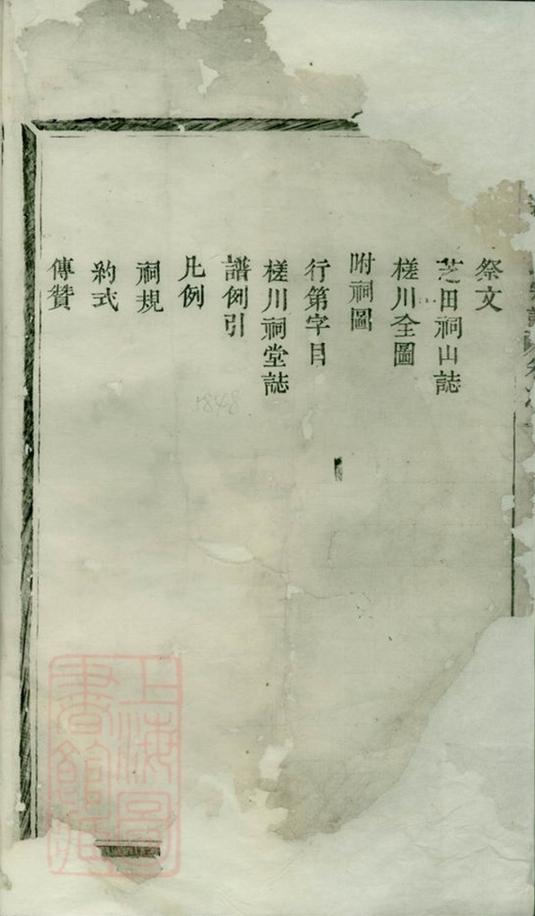 祭文
芝田祠山誌
槎川全圖
附祠圖
行第字目
槎川祠堂誌
譜例引
凡例
祠規
約式
傳贊
18448
上海圖
書館藏